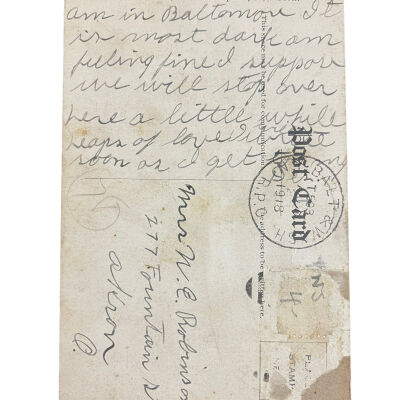 am in Baltomore It
is most dark am
feeling fine I suppose
we will stop over
here a little while
heaps of love
soon as I get
Mrs W. E. Robinson
277 Fountain S
akron
O.
Post Card
This space may be used for communication
address to be written here.
BALT. &
1918
R.P.O.
PLACE
STAMP